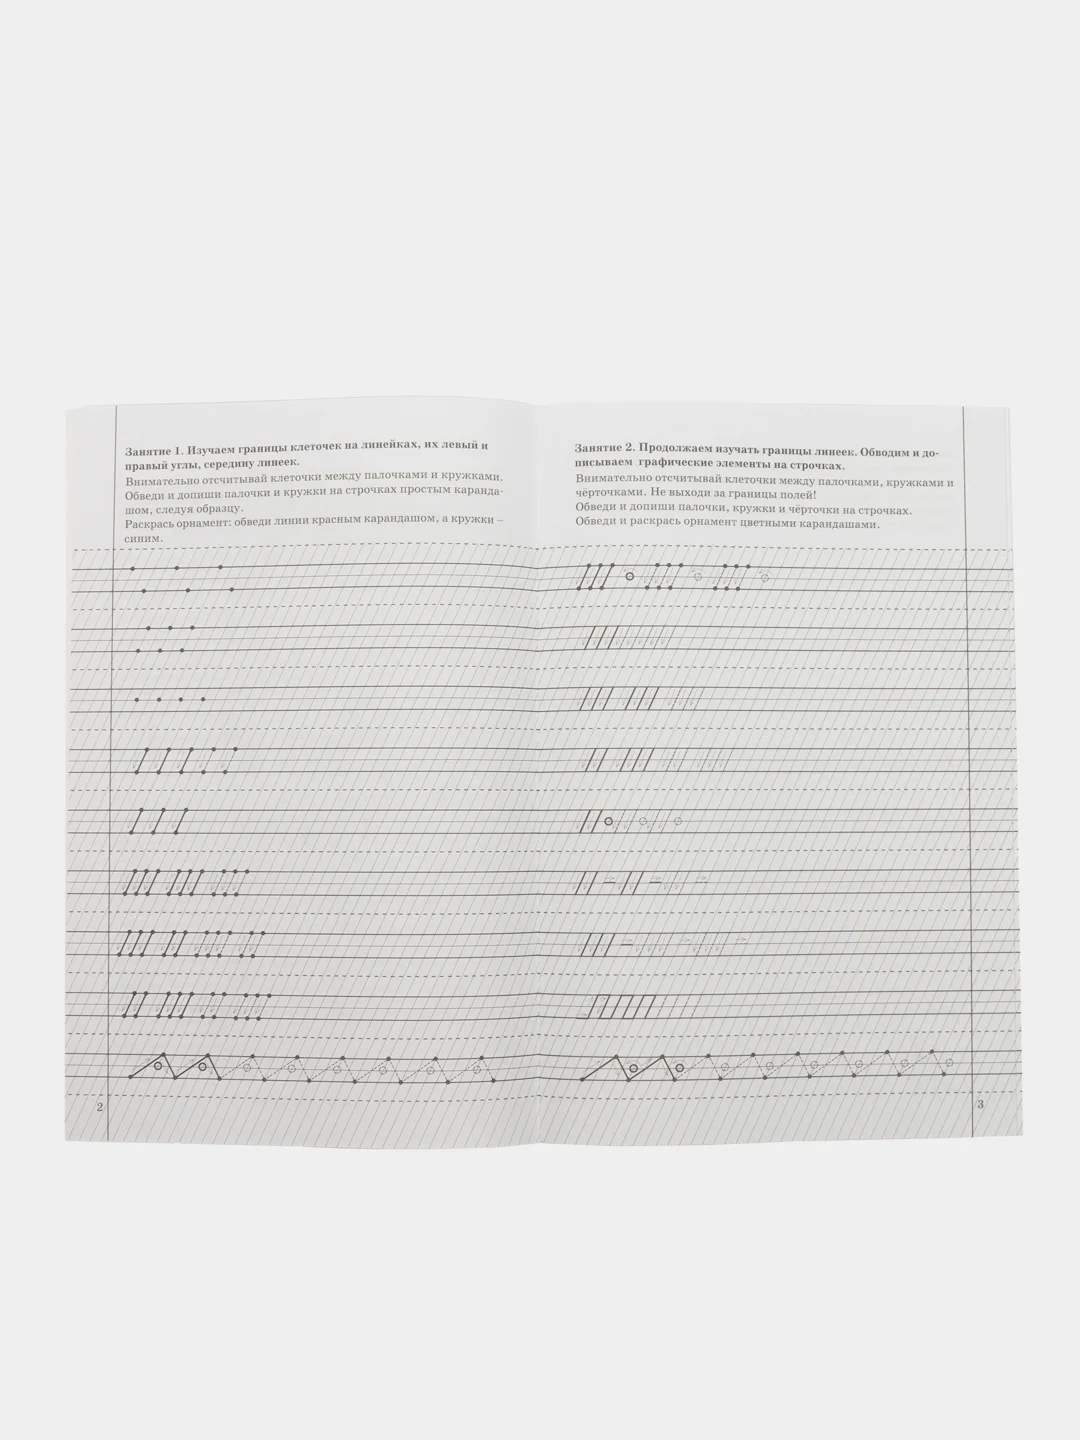 Занятие 1. Изучаем границы клеточек на линейках, их левый и
правый углы, середину линеек.
Внимательно отсчитывай клеточки между палочками и кружками.
Обведи и допиши палочки и кружки на строчках простым каранда-
шом, следуя образцу.
Раскрась орнамент: обведи линии красным карандашом, а кружки –
синим.
2
Занятие 2. Продолжаем изучать границы линеек. Обводим и до-
писываем графические элементы на строчках.
Внимательно отсчитывай клеточки между палочками, кружками и
чёрточками. Не выходи за границы полей!
Обведи и допиши палочки, кружки и чёрточки на строчках.
Обведи и раскрась орнамент цветными карандашами.
3